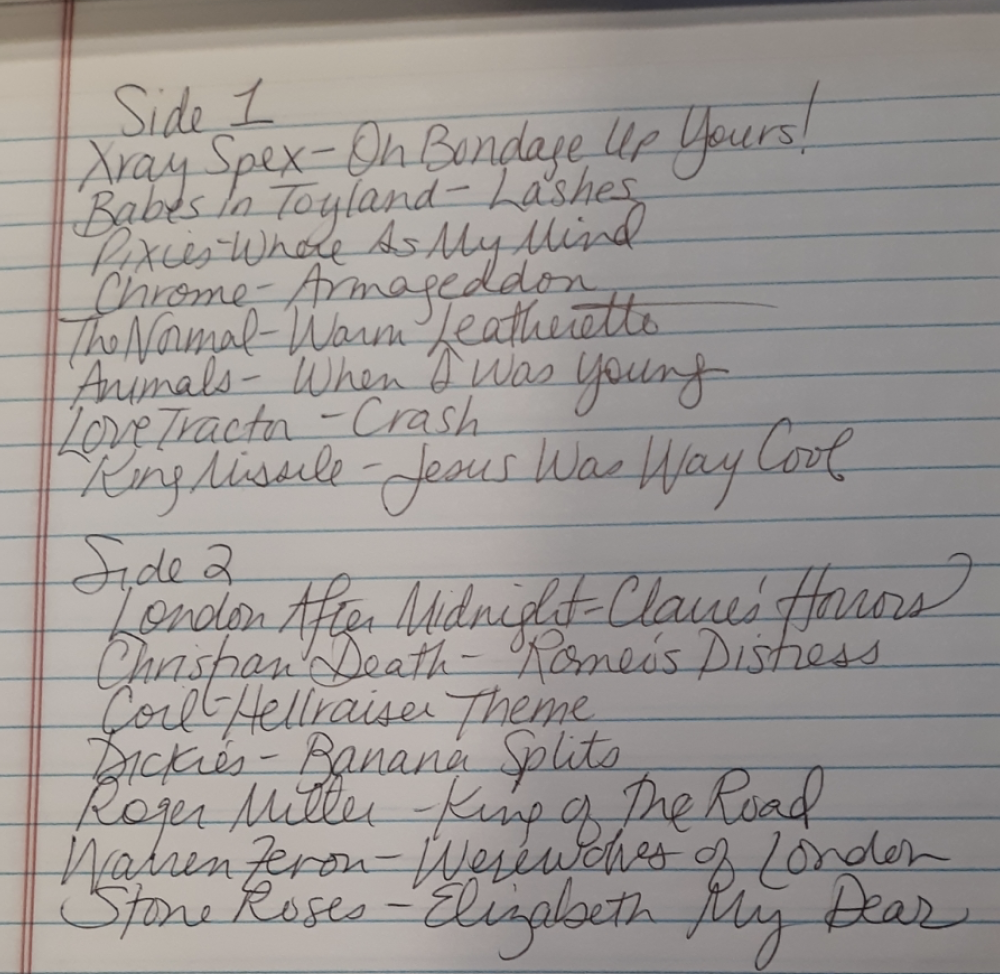 Side 1
Xray Spex - Oh Bondage Up Yours!
Babes In Toyland - Lashes
Pixies - Where Is My Mind
Chrome - Armageddon
The Normal - Warm Leatherette
Animals - When I Was Young
Love Tractor - Crash
King Missile - Jesus Was Way Cool
Side 2
London After Midnight - Claire's Horrors
Christian Death - Romeo's Distress
Coil - Hellraiser Theme
Dickies - Banana Splits
Roger Miller - King of The Road
Warren Zevon - Werewolves of London
Stone Roses - Elizabeth My Dear